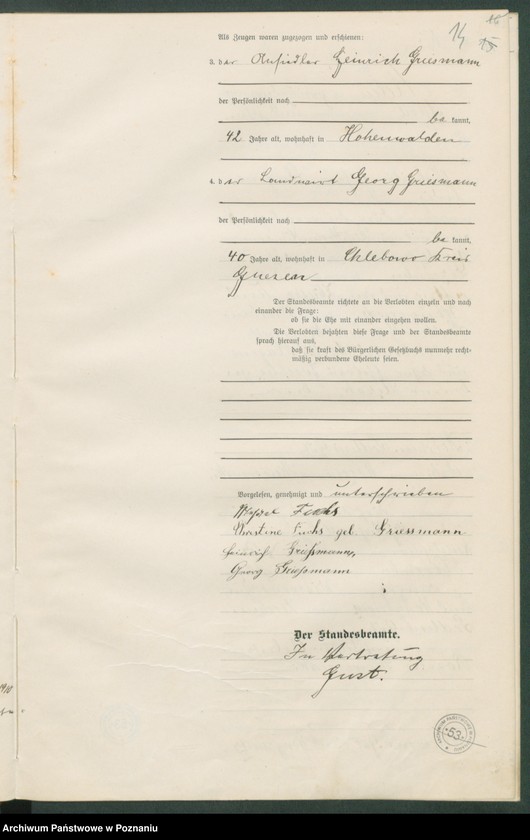 14
Als Zeugen waren zugezogen und erschienen:
3. der Ansiedler Heinrich Griesmann
der Persönlichkeit nach
be kannt,
42 Jahre alt, wohnhaft in Hohenwalden
4. der Landwirt Georg Griesmann
der Persönlichkeit nach
be kannt,
40 Jahre alt, wohnhaft in Chlebowo Kreis
Gnesen
Der Standesbeamte richtete an die Verlobten einzeln und nach
einander die Frage:
ob sie die Ehe mit einander eingehen wollen.
Die Verlobten bejahten diese Frage und der Standesbeamte
sprach hierauf aus,
daß sie kraft des Bürgerlichen Gesetzbuchs nunmehr recht-
mäßig verbundene Eheleute seien.
Vorgelesen, genehmigt und unterschrieben
Fuchs
Christine Fuchs geb. Griessmann
Heinrich Grießmann
Georg Griessmann
Der Standesbeamte.
In Vertretung
Gust.
53
Archiwum Państwowe w Poznaniu